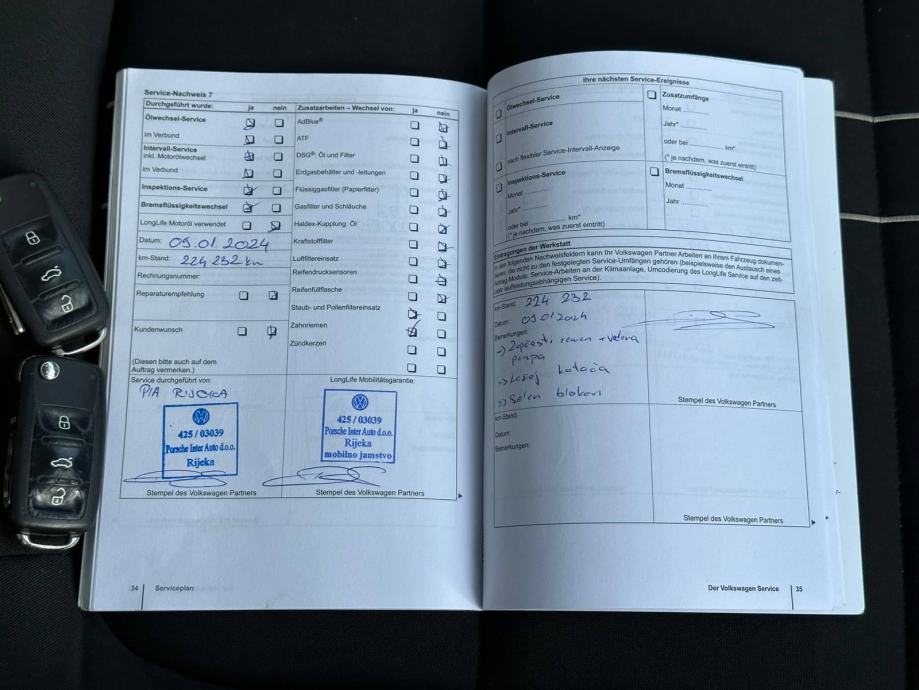 Service-Nachweis 7
Durchgeführt wurde: ja nein
Ölwechsel-Service
im Verbund
Intervall-Service
inkl. Motorölwechsel
im Verbund
Inspektions-Service
Bremsflüssigkeitswechsel
LongLife Motoröl verwendet
Datum: 09.01.2024
km-Stand: 224 232 km
Rechnungsnummer:
Reparaturempfehlung
Kundenwunsch
(Diesen bitte auch auf dem
Auftrag vermerken.)
Zusatzarbeiten – Wechsel von: ja nein
AdBlue®
ATF
DSG®: Öl und Filter
Erdgasbehälter und -leitungen
Flüssiggasfilter (Papierfilter)
Gasfilter und Schläuche
Haldex-Kupplung: Öl
Kraftstofffilter
Luftfiltereinsatz
Reifendrucksensoren
Reifenfüllflasche
Staub- und Pollenfiltereinsatz
Zahnriemen
Zündkerzen
Service durchgeführt von:
PIA RIJEKA
425 / 03039
Porsche Inter Auto d.o.o.
Rijeka
Stempel des Volkswagen Partners
LongLife Mobilitätsgarantie:
425 / 03039
Porsche Inter Auto d.o.o.
Rijeka
mobilno jamstvo
Stempel des Volkswagen Partners
34 Serviceplan
Ihre nächsten Service-Ereignisse
Ölwechsel-Service
Intervall-Service
nach flexibler Service-Intervall-Anzeige
Inspektions-Service
Monat
Jahr*
oder bei km*
(* je nachdem, was zuerst eintritt)
Zusatzumfänge
Monat
Jahr*
oder bei km*
(* je nachdem, was zuerst eintritt)
Bremsflüssigkeitswechsel
Monat
Jahr
Eintragungen der Werkstatt
In den folgenden Nachweisfeldern kann Ihr Volkswagen Partner Arbeiten an Ihrem Fahrzeug dokumen-
tieren, die nicht zu den festgelegten Service-Umfängen gehören (beispielsweise den Austausch eines
Airbag-Moduls, Service-Arbeiten an der Klimaanlage, Umcodierung des LongLife Service auf den zeit-
oder laufleistungsabhängigen Service).
km-Stand: 224 232
Datum: 09.01.2024
Bemerkungen:
remen + vodena
pumpa
Ležaj kotača
blokovi
Stempel des Volkswagen Partners
km-Stand:
Datum:
Bemerkungen:
Stempel des Volkswagen Partners
Der Volkswagen Service 35